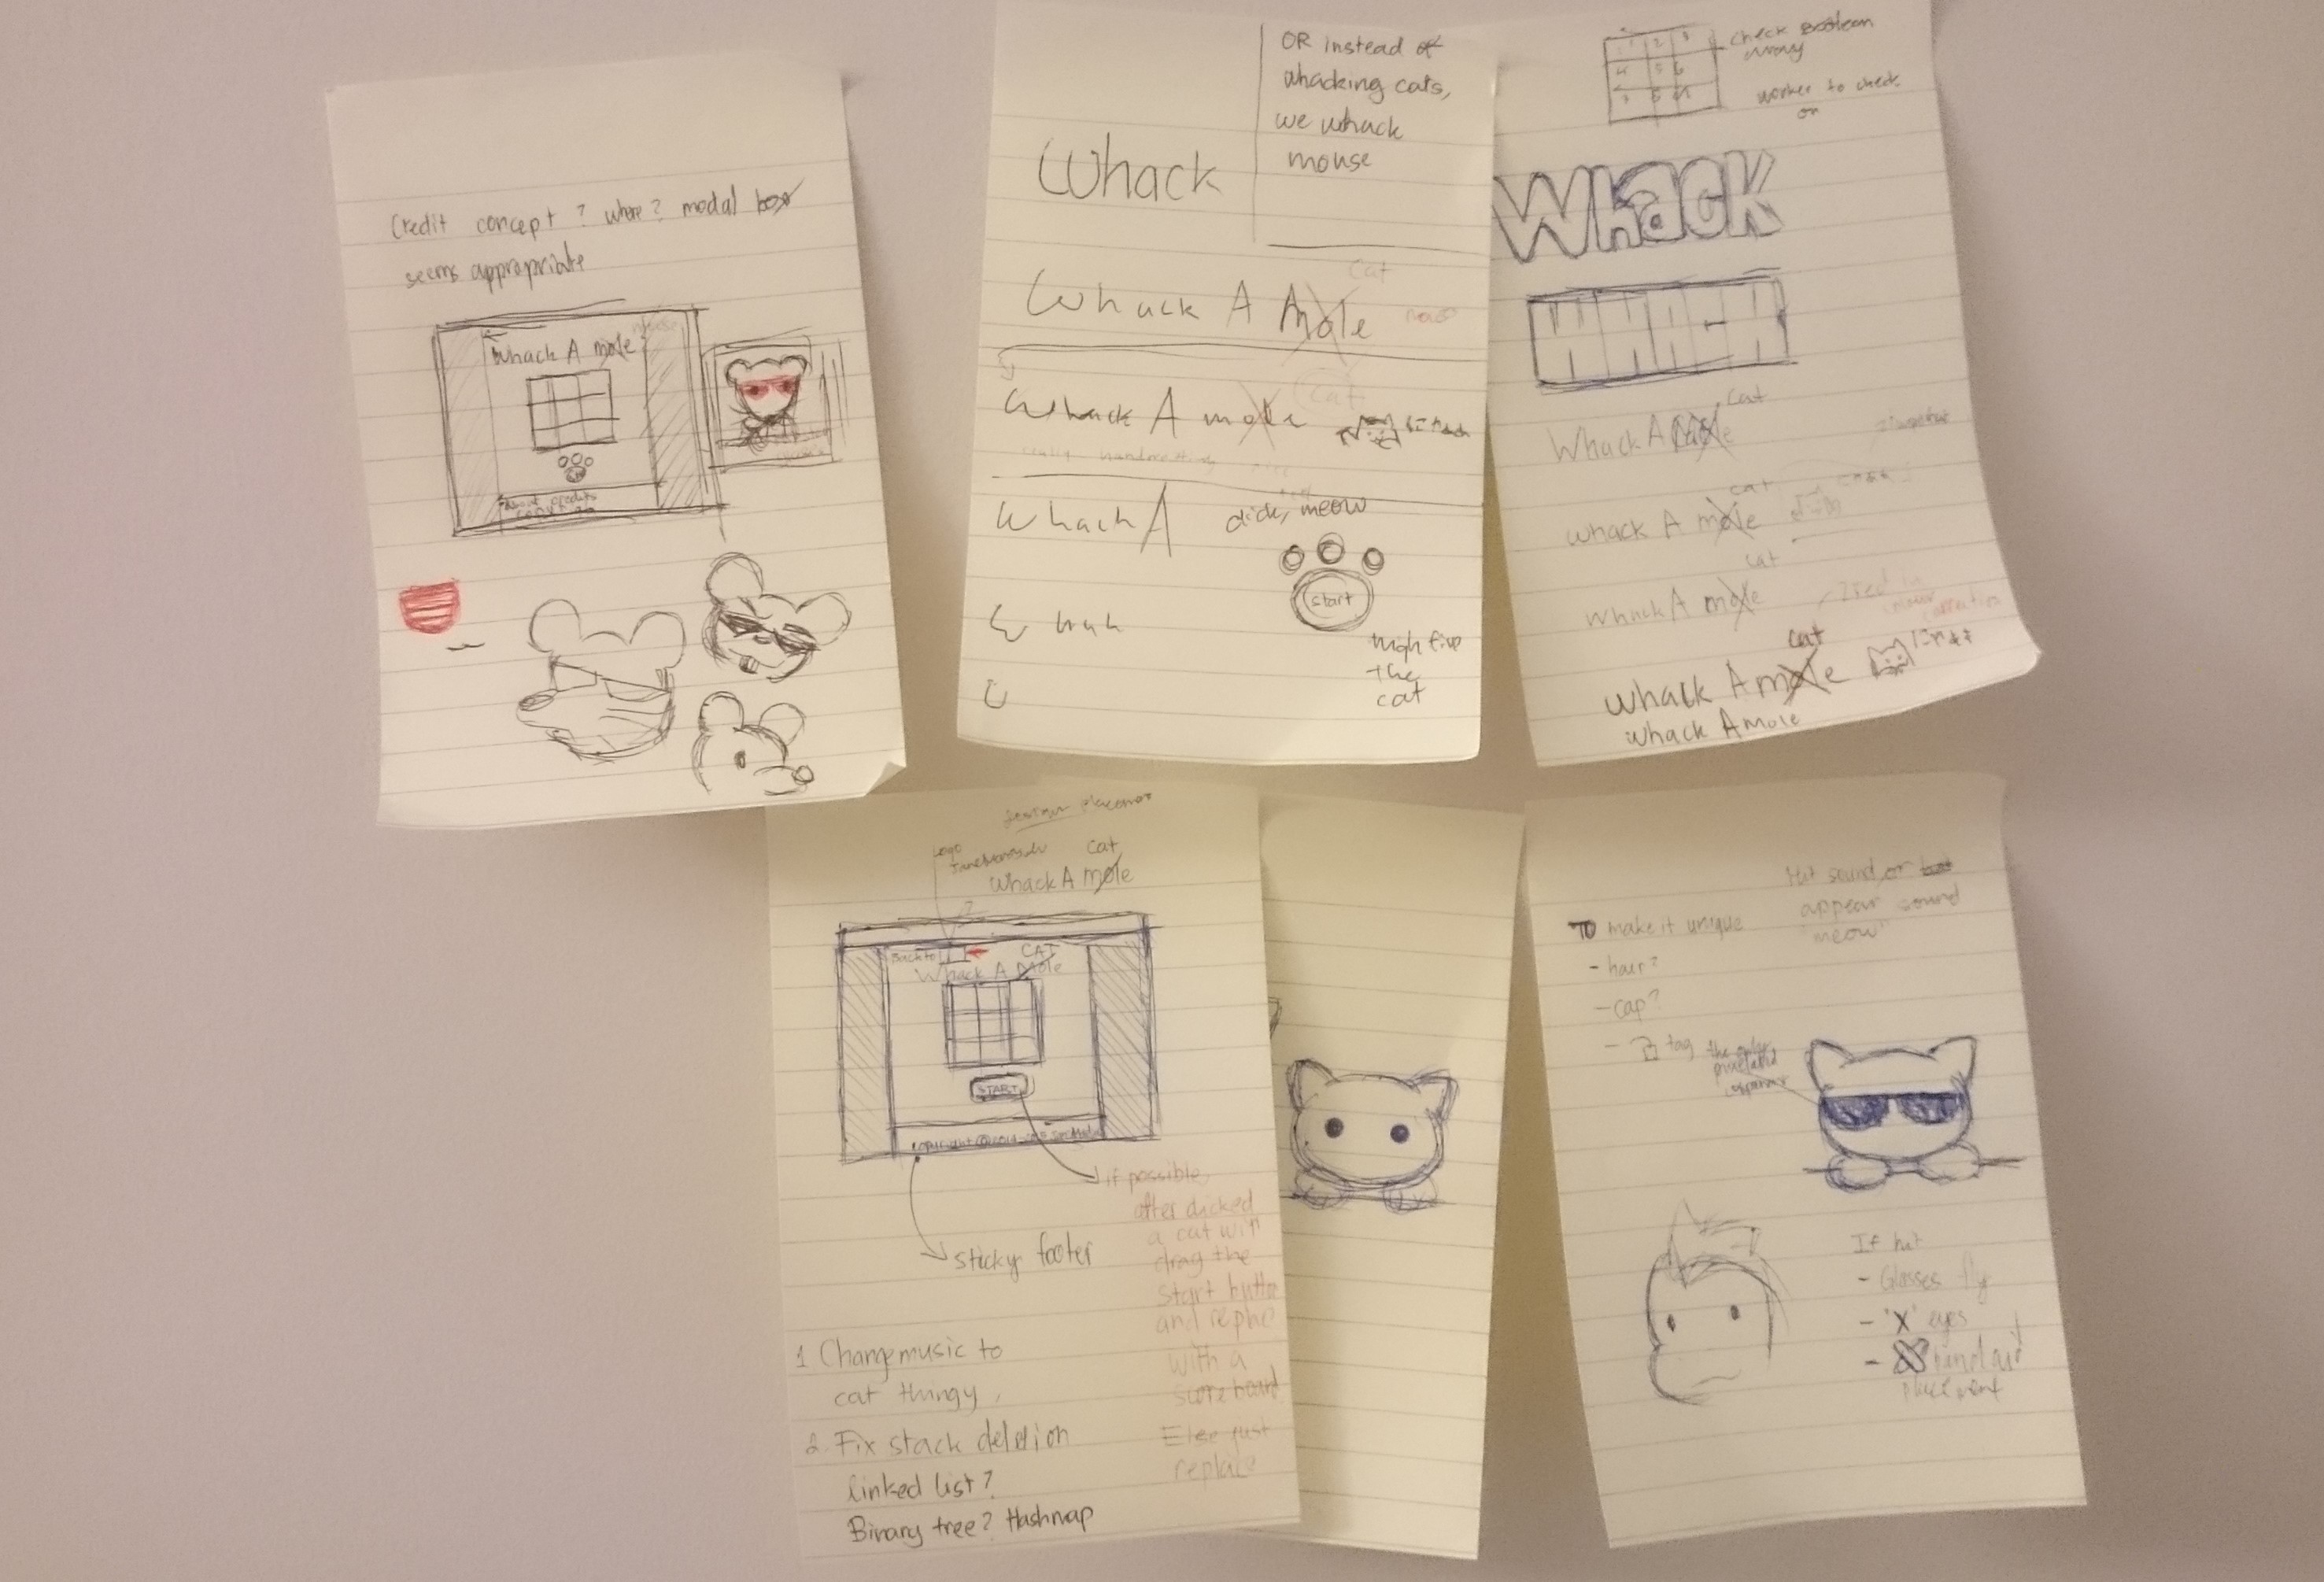 Credit concept ? where? modal box
seems appropriate
Whack A mole
about credits
OR instead of
whacking cats,
we whack
mouse
Whack
Cat
Whack A Mole
Cat
Whack A mole
Whack A
click, meow
start
high five
the
cat
1 2 3
4 5 6
check Boolean
array
worker to check
on
Whack
WHACK
Cat
Whack A
cat
whack A mole
cat
whack A mole
cat
whack A mole
whack A mole
Logo
Cat
Whack A mole
Back to
CAT
Whack A Mole
START
if possible
after clicked
a cat will
drag the
start button
and
with a
score board
Else just
replace
sticky footer
1 Change music to
cat thingy
2. Fix stack deletion
linked list?
Binary tree? Hashmap
Hit sound or
appear sound
"meow"
To make it unique
- hair?
- cap?
- tag
the only
If hit
- Glasses fly
- 'X' eyes
- band aid
placement